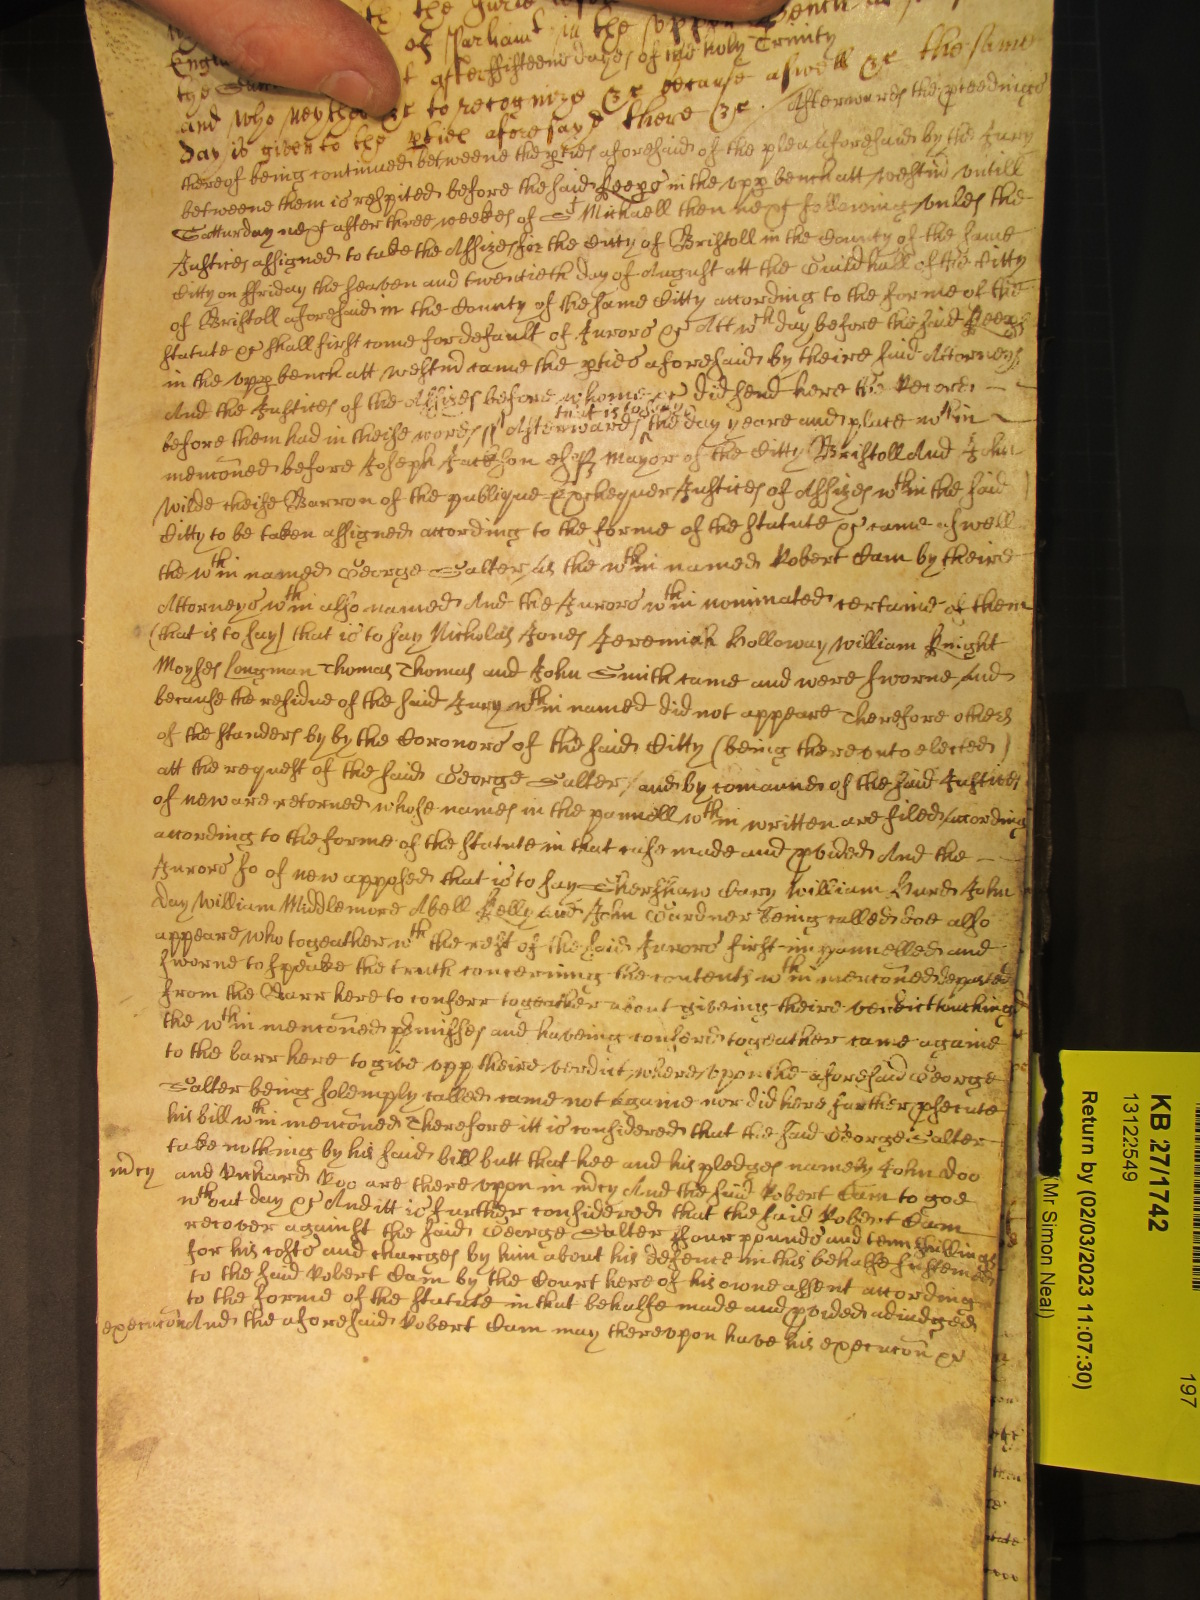 the Jurie
Engl of Parliamt in the upper Bench at
the after fifteene dayes of the holy Trinity
and who neyther &c to recognize &c because aswell &c the same
day is given to the pties aforesayd there &c. Afterwards the pceedings
thereof being continued betweene the pties aforesaid of the plea aforesaid by the Jury
betweene them is respited before the said keeps in the upp bench att Westmr untill
Satturday next after three weekes of St Michaell then next following unles the
Justices assigned to take the Assizes for the Citty of Bristoll in the County of the same
Citty on ffriday the seaven and twentieth day of August att the Guildhall of the Citty
of Bristoll aforesaid in the County of the same Citty according to the forme of the
statute &c shall first come for default of Jurors &c Att wch day before the said keeps
in the upp bench att Westmr came the pties aforesaid by theire said Attorneys
And the Justices of the Assizes before whome &c did send here the Record
before them had in theise words that is to say Afterwards the day yeare and place wthin
menconed before Joseph Jackson esqr Mayor of the Citty Bristoll And John
Wilde cheife Barron of the publique Exchequer Justices of Assizes wthin the said
Citty to be taken assigned according to the forme of the statute &c came aswell
the wthin named George Salter as the wthin named Robert Cam by theire
Attorneys wthin also named And the Jurors wthin nominated certaine of them
(that is to say) that is to say Nicholas Jones Jeremiah Holloway William Knight
Moyses Longman Thomas Thomas and John Smith came and were sworne And
because the residue of the said Jury wthin named did not appeare Therefore others
of the standers by by the Coronors of the said Citty (being thereunto elected)
att the request of the said George Salter and by comaund of the said Justices
of new are retorned whose names in the pannell wthin written are filed according
according to the forme of the statute in that case made and pvided And the
Jurors so of new apposed that is to say Shershaw Cary William Hurd John
Day William Middlemore Abell Kelly and John Gardner being called doe also
appeare who togeather wth the rest of the said Jurors first impannelled and
sworne to speake the truth concerning the contents wthin menconed departed
from the Barr here to conferr togeather about giveing theire verdict touching
the wthin menconed pmisses and haveing conferd togeather came againe
to the barr here to give upp theire verdict, whereupon the aforesaid George
Salter being solemply called came not againe nor did here further psecute
his bill wthin menconed Therefore itt is considered that the said George Salter
take nothing by his said bill butt that hee and his pledges namely John Doo
mcy and Richard Roo are thereupon in mcy And the said Robert Cam to goe
wthout day &c And itt is further considered that the said Robert Cam
recover against the said George Salter foure pounds and tenn shillings
for his costs and charges by him about his defence in this behalfe susteined
to the said Robert Cam by the Court here of his owne assent according
to the forme of the statute in that behalfe made and pvided adiudged
execucon And the aforesaid Robert Cam may thereupon have his execucon &c
KB 27/1742
13122549
Return by (02/03/2023 11:07:30)
(Mr Simon Neal)
197